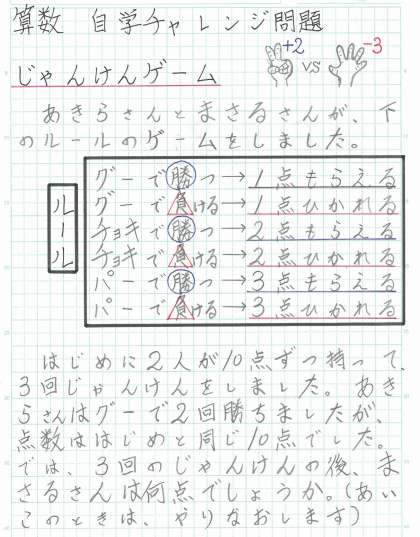 算数 自学チャレンジ問題
+2 VS -3
じゃんけんゲーム
あきらさんとまさるさんが、下
のルールのゲームをしました。
ルール
グーで勝つ→1点もらえる
グーで負ける→1点ひかれる
チョキで勝つ→2点もらえる
チョキで負ける→2点ひかれる
パーで勝つ→3点もらえる
パーで負ける→3点ひかれる
はじめに2人が10点ずつ持って、
3回じゃんけんをしました。あき
らさんはグーで2回勝ちましたが、
点数ははじめと同じ10点でした。
では、3回のじゃんけんの後、ま
さるさんは何点でしょうか。(あい
このときは、やりなおします)